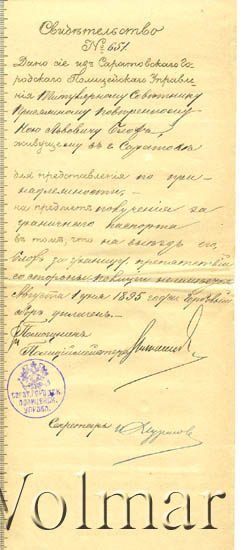 Свидѣтельство
№ 651.
Дано сіе изъ Саратовскаго Го-
родскаго Полицейскаго Управле-
нія Титулярному Совѣтнику
Присяжному Повѣренному
Львовичу
живущему въ г. Саратовѣ
для представленія по при-
надлежности,
на предметъ полученія за
граничнаго паспорта
въ томъ, что на выѣздъ его,
за границу, препятствій
со стороны полиціи не имѣется
Августа 1 дня 1895 года. Гербовый
сборъ уплаченъ.
Помощникъ
Полиційместера
Секретарь
Volmar